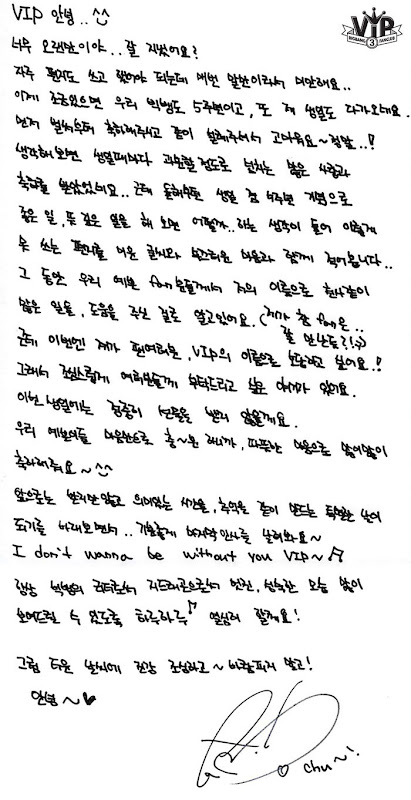 VIP 안녕.. ^^
VIP
BIGBANG FANCLUB
3
너무 오랜만이야.. 잘 지냈어요?
자주 편지도 쓰고 했어야 되는데 매번 말만이라서 미안해요..
이제 조금있으면 우리 빅뱅도 5주년이고, 또 제 생일도 다가오네요..
먼저 벌써부터 축하해주시고 같이 설레주셔서 고마워요~ 정말..!
생각해보면 생일때마다 과분할정도로 넘치는 많은 사랑과
축하를 받았었네요.. 근데 올해부턴 생일 겸 5주년 기념으로
좋은 일, 뜻 깊은 일을 해 보면 어떨까.. 하는 생각이 들어 이렇게
못 쓰는 편지를 미운 글씨와 부끄러운 마음과 함께 적어봅니다..
그 동안 우리 예쁜 fan분들께서 저의 이름으로 한사랑이
많은 일들, 도움을 주신 걸로 알고있어요. (제가 참 fan은..
잘 만난듯?!;;)
근데 이번엔 제가 팬여러분, VIP의 이름으로 보답하고 싶어요..!
그래서 조심스럽게 여러분들께 부탁드리고 싶은 얘기가 있어요.
이번 생일에는 정중히 선물을 받지 않을게요.
우리 예쁜이들 마음만으로 충~분 하니까, 따뜻한 마음으로 많이많이
축하해줘요~^^
앞으로는 받기만 않고 의미있는 시간을, 추억을 같이 만드는 특별한 날이
되기를 바래보면서.. 기분좋게 마지막 인사를 날려봐요~
I don't wanna be without you VIP~♬
항상 빅뱅의 리더로서 지드래곤으로서 멋진, 성숙한 모습 많이
보여드릴 수 있도록 하루하루♪ 열심히 할게요!
그럼 더운 날씨에 건강 조심하고~ 바람피지 말고!
안녕~♥
G.D
chu~!